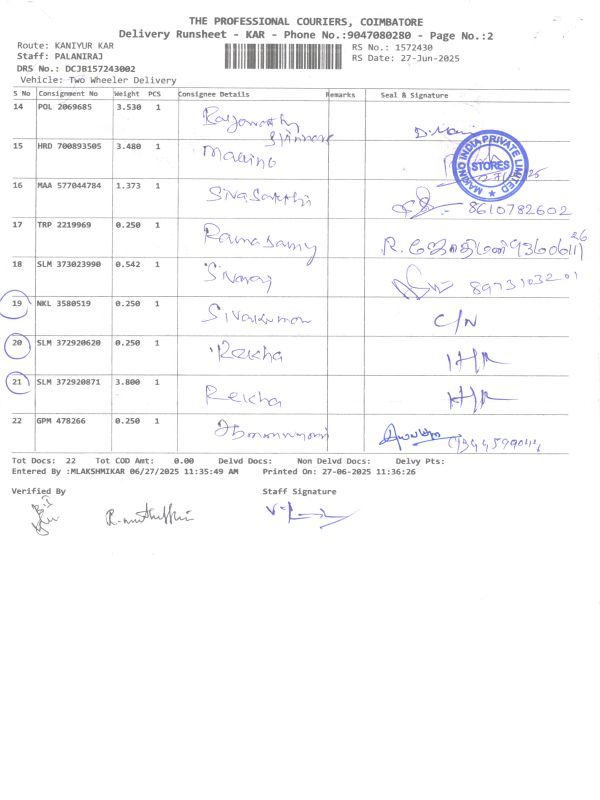 THE PROFESSIONAL COURIERS, COIMBATORE
Delivery Runsheet - KAR - Phone No.:9047080280 - Page No.:2
Route: KANIYUR KAR
RS No.: 1572430
Staff: PALANIRAJ
RS Date: 27-Jun-2025
DRS No.: DCJB157243002
Vehicle: Two Wheeler Delivery
S No Consignment No Weight PCS Consignee Details Remarks Seal & Signature
14 POL 2069685 3.530 1
15 HRD 700893505 3.480 1 Makino
MAKINO INDIA PRIVATE LIMITED
STORES
16 MAA 577044784 1.373 1 Sivasakthi 8610782602
17 TRP 2219969 0.250 1 Ramasamy
18 SLM 373023990 0.542 1 Sivaraj 8973103201
19 NKL 3580519 0.250 1 Sivakumar C/N
20 SLM 372920620 0.250 1 Rekha H/R
21 SLM 372920871 3.800 1 Rekha H/R
22 GPM 478266 0.250 1
Tot Docs: 22 Tot COD Amt: 0.00 Delvd Docs: Non Delvd Docs: Delvy Pts:
Entered By :MLAKSHMIKAR 06/27/2025 11:35:49 AM Printed On: 27-06-2025 11:36:26
Verified By Staff Signature